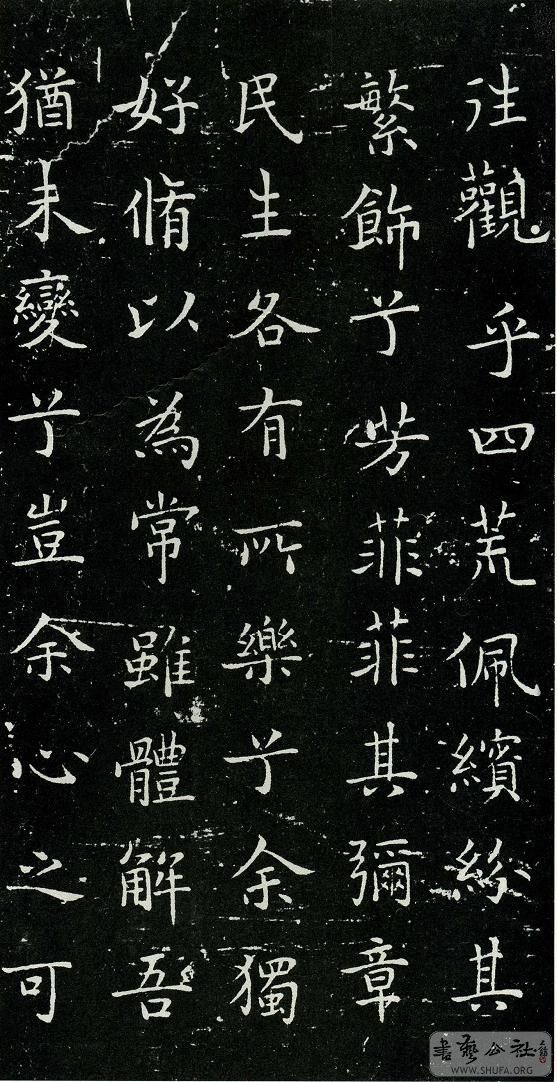 往觀乎四荒佩繽紛其
繁飾兮芳菲菲其彌章
民生各有所樂兮余獨
好脩以為常雖體解吾
猶未變兮豈余心之可
書藝公社
WWW.SHUFA.ORG